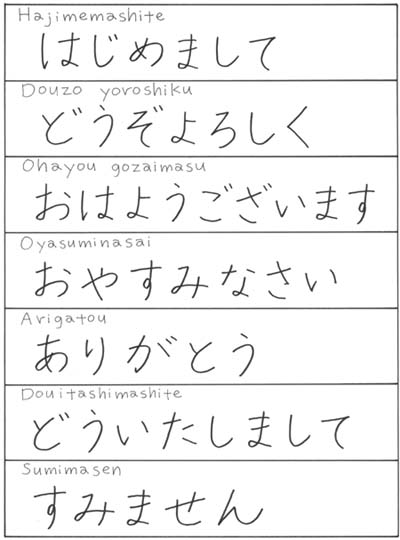 Hajimemashite
はじめまして
Douzo yoroshiku
どうぞよろしく
Ohayou gozaimasu
おはようございます
Oyasuminasai
おやすみなさい
Arigatou
ありがとう
Douitashimashite
どういたしまして
Sumimasen
すみません